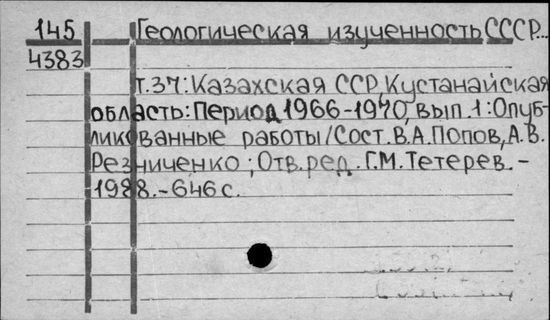 145 Геологическая изученность СССР...
4383
Т.37: Казахская ССР, Кустанайская
область: Период 1966-1970, вып.1: Опуб-
ликованные работы/Сост. В.А.Попов, А.В.
Резниченко; Отв.ред. Г.М.Тетерев.-
1988.-646с.